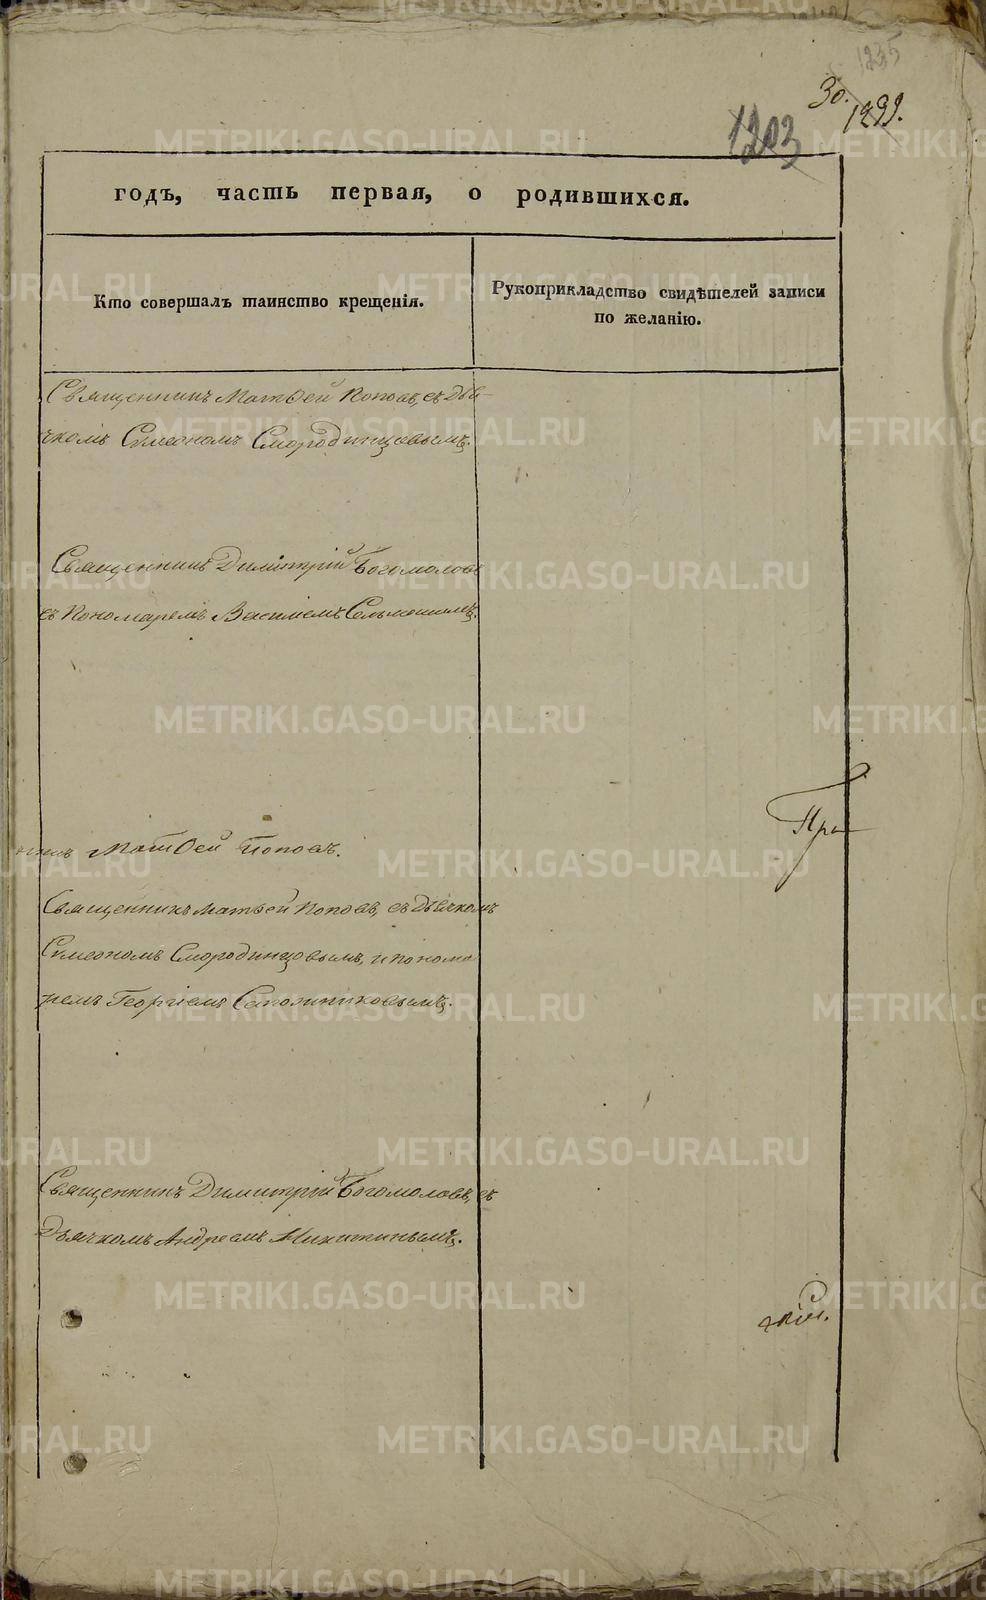 1235
30.
1299.
1203
годъ, часть первая, о родившихся.
Кто совершалъ таинство крещенія.
Рукоприкладство свидѣтелей записи
по желанію.
Священникъ Матѳей Поповъ, съ Дья-
чкомъ Сѵмеономъ Смородинцовымъ.
Священникъ Димитрій Богомоловъ
съ Пономаремъ Василіемъ
Матѳей Поповъ.
Священникъ Матѳей Поповъ, съ Дьячкомъ
Сѵмеономъ Смородинцовымъ, и понома
ремъ Георгіемъ Сапожниковымъ.
Священникъ Димитрій Богомоловъ, съ
Дьячкомъ Андреемъ Никитинымъ.
При
METRIKI.GASO-URAL.RU